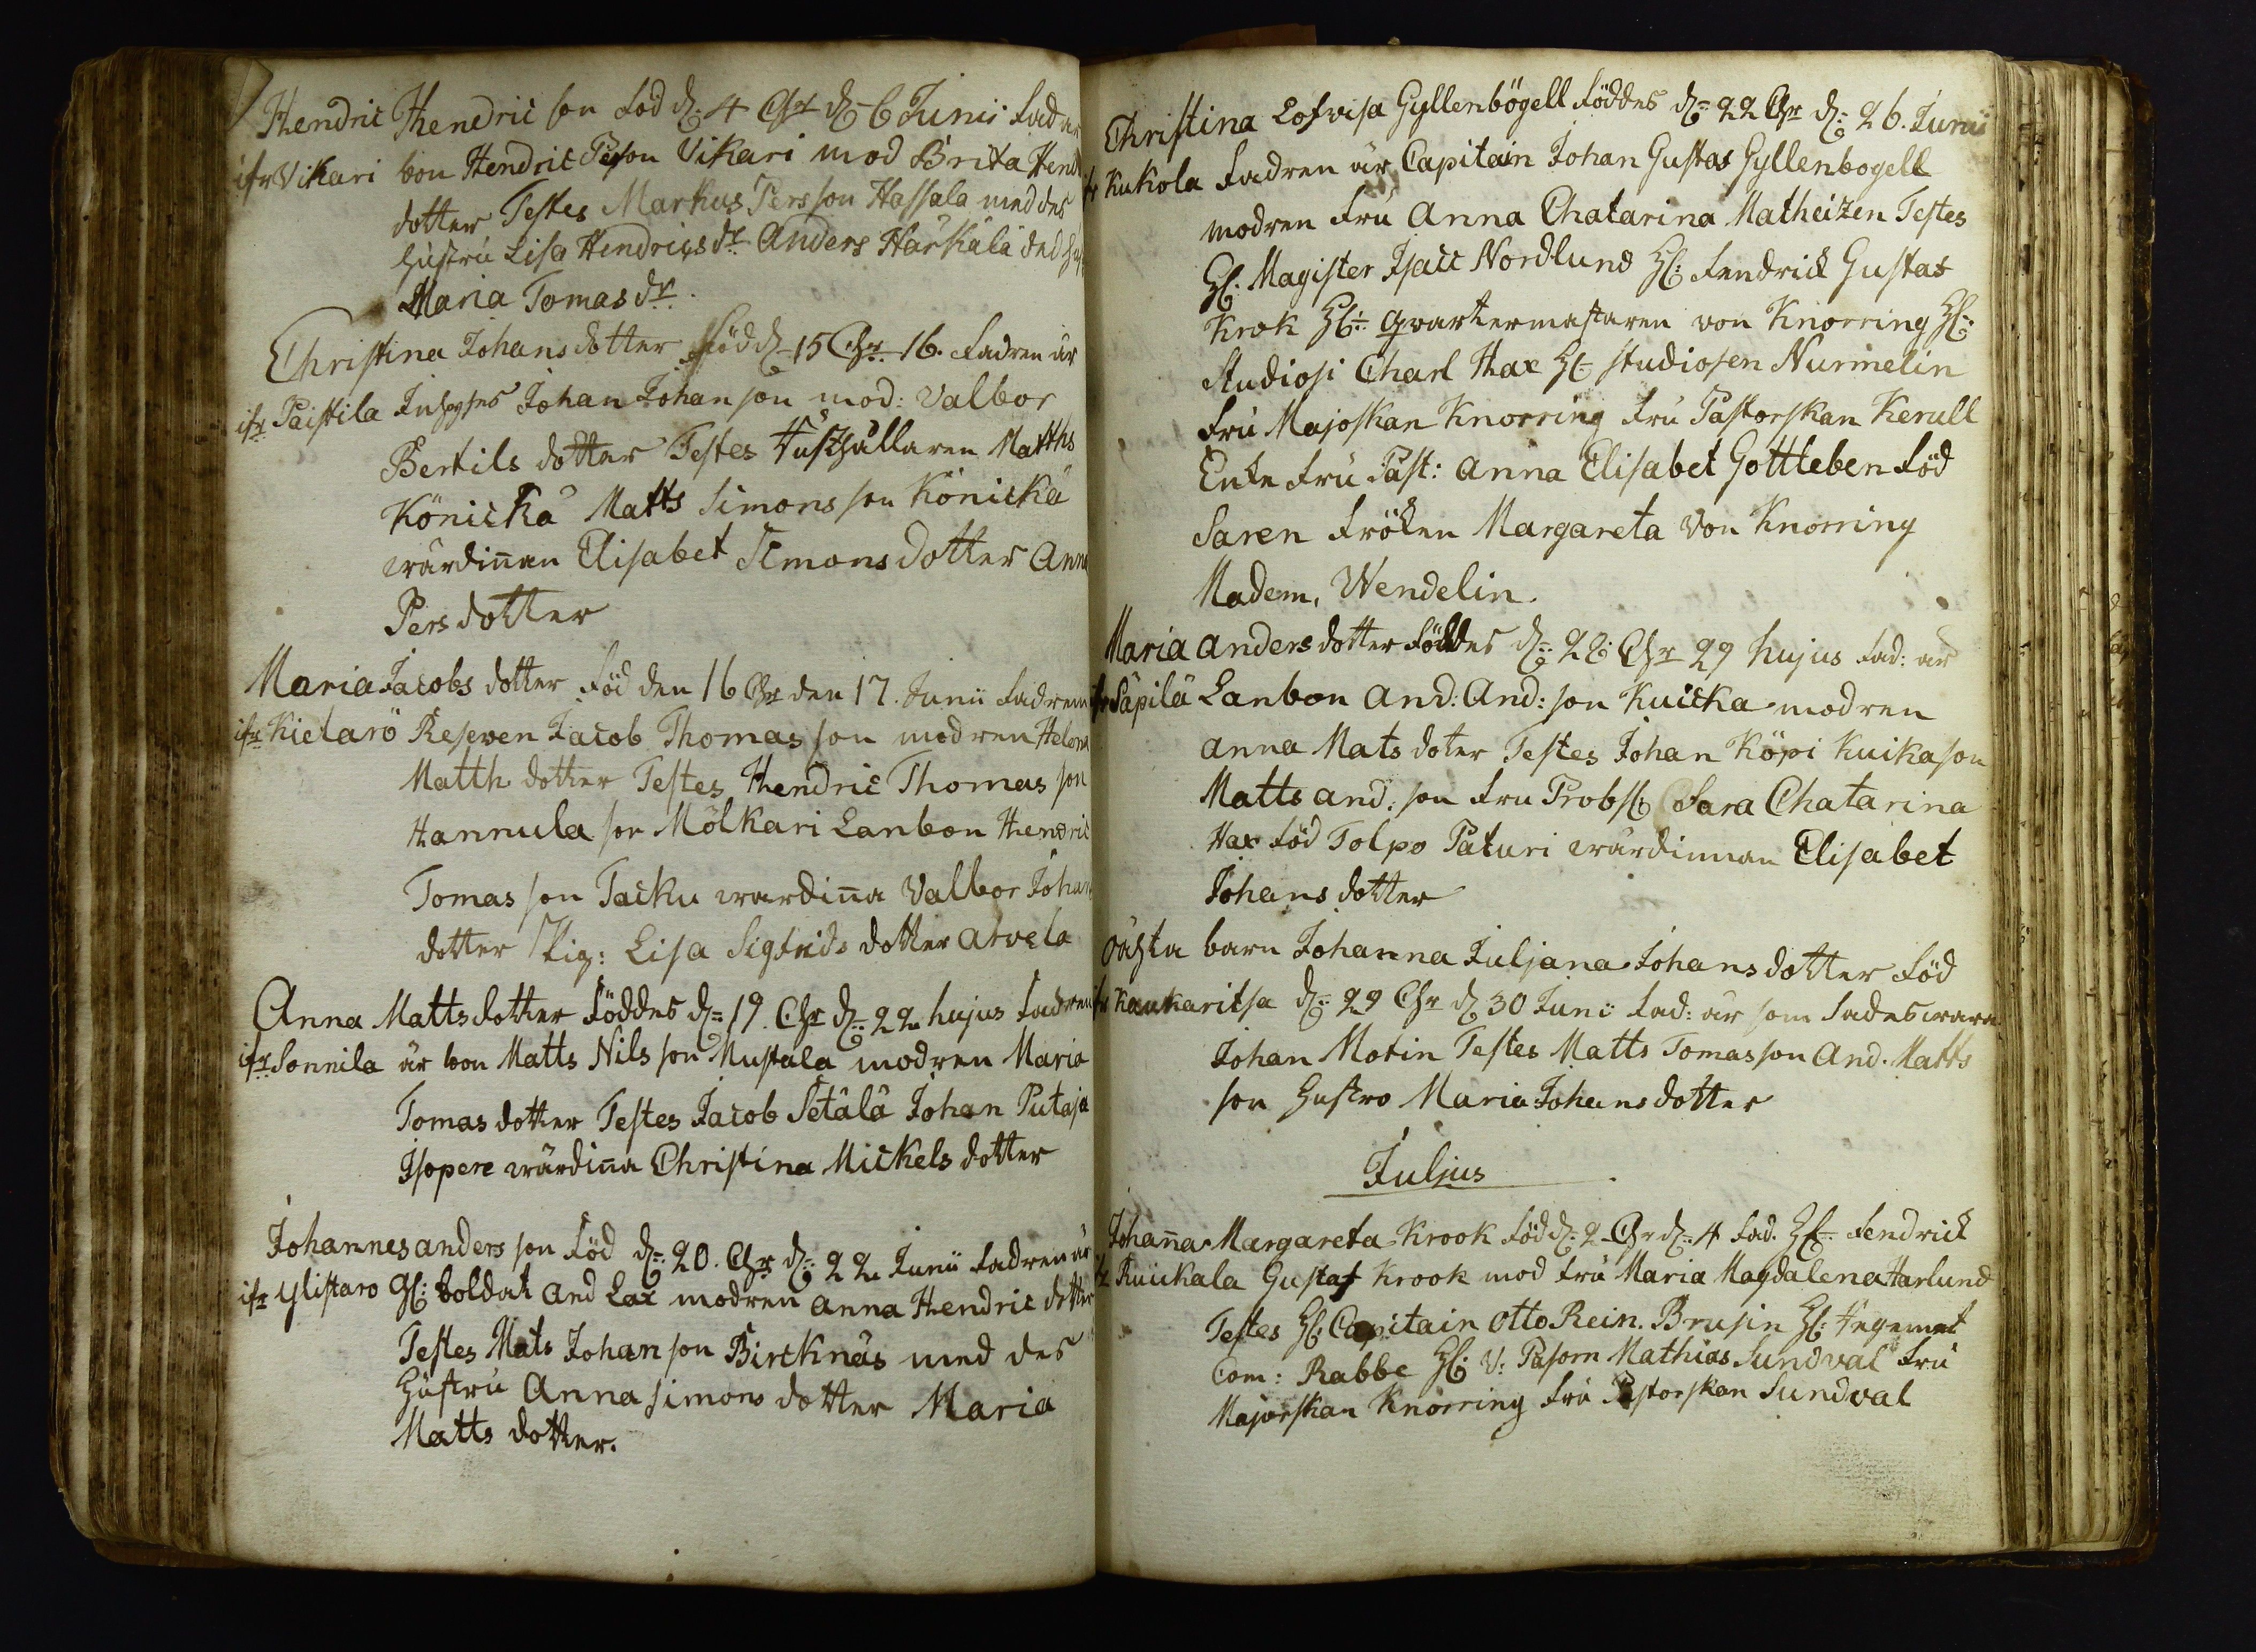 Hendric Hendric son föd d. 4 Chr d. 6 Junii fadren
ifr Vikari bon Hendric Person Vikari mod Brita Hend
dotter Testes Markus Persson Hassala med des
hustru Lisa Hendrics dr Anders Härkälä des
Maria Tomas dr.
Christina Johans dotter föd d. 15 Chr. 16. fadren är
ifr Paistila Johan Johan son mod: Valbor
Bertils dotter Testes Rusthållaren Matths
Könickä Matts Simons son Könickä
wärdinnan Elisabet Simons dotter Anna
Pers dotter
Maria Jacobs dotter föd den 16 Chr den 17. Junii fadren
ifr Kietarö Reserven Jacob Thomas son modren Helena
Matth dotter Testes Hendric Thomas son
Hannula son Mölkari Lanbon Hendric
Tomas son Tacku wardinna Valbor Johan
dotter Pig: Lisa Sigfrids dotter Arvela
Anna Matts dotter föddes d. 19. Chr d. 22 hujus fadren
ifr Sonnila är bon Matts Nils son Mustala modren Maria
Tomas dotter Testes Jacob Setälä Johan Putaja
Isopere wärdinna Christina Mickels dotter
Johannes anders son föd d. 20. Chr d. 22 Junii fadren är
ifr Ylistaro Soldat And Lax modren Anna Hendric dotter
Testes Mats Johan son Bircknäs med des
Hustru Anna Simons dotter Maria
Matts dotter.
Christina Lofvisa Gyllenbögell föddes d. 22 Chr d. 26. Junii
ifr Kukola fadren är Capitain Johan Gustas Gyllenbogell
modren fru Anna Chatarina Matheizen Testes
H: Magister Isacc Nordlund H: Fendrick Gustas
Krok H: Qvartermastaren von Knorring H:
Studiosi Charl Hax H: studiosen Nurmelin
fru Majoskan Knorring fru Pastorskan Kerull
Enke fru Past: Anna Elisabet Gottleben föd
Saren fröken Margareta von Knorring
Madem. Wendelin.
Maria Anders dotter föddes d. 28 Chr 29 hujus fad: är
ifr Säpilä Lanbon And: And: son Kuicka modren
Anna Mats doter Testes Johan Köpi Kuika son
Matts and: son fru Probs: Sara Chatarina
Hax föd Tolpo Paturi wärdinnan Elisabet
Johans dotter
Oächta barn Johanna Juljana Johans dotter föd
ifr Kaukaritsa d. 29 Chr d 30 Juni fad: är som sades wara
Johan Motin Testes Matts Tomasson And. Matts
son Hustro Maria Johans dotter
Juljus
Johanna Margareta Krook föd d. 2 Chr d. 4 fad. H: Fendrick
Ruickala Gustaf Krook mod fru Maria Magdalena Harlund
Testes H: Capitain Otto Rein. Brusin H: Regemet
Com: Rabbe H: V: Pasorn Mathias Sundval fru
Majorskan Knorring fru Pastorskan Sundval